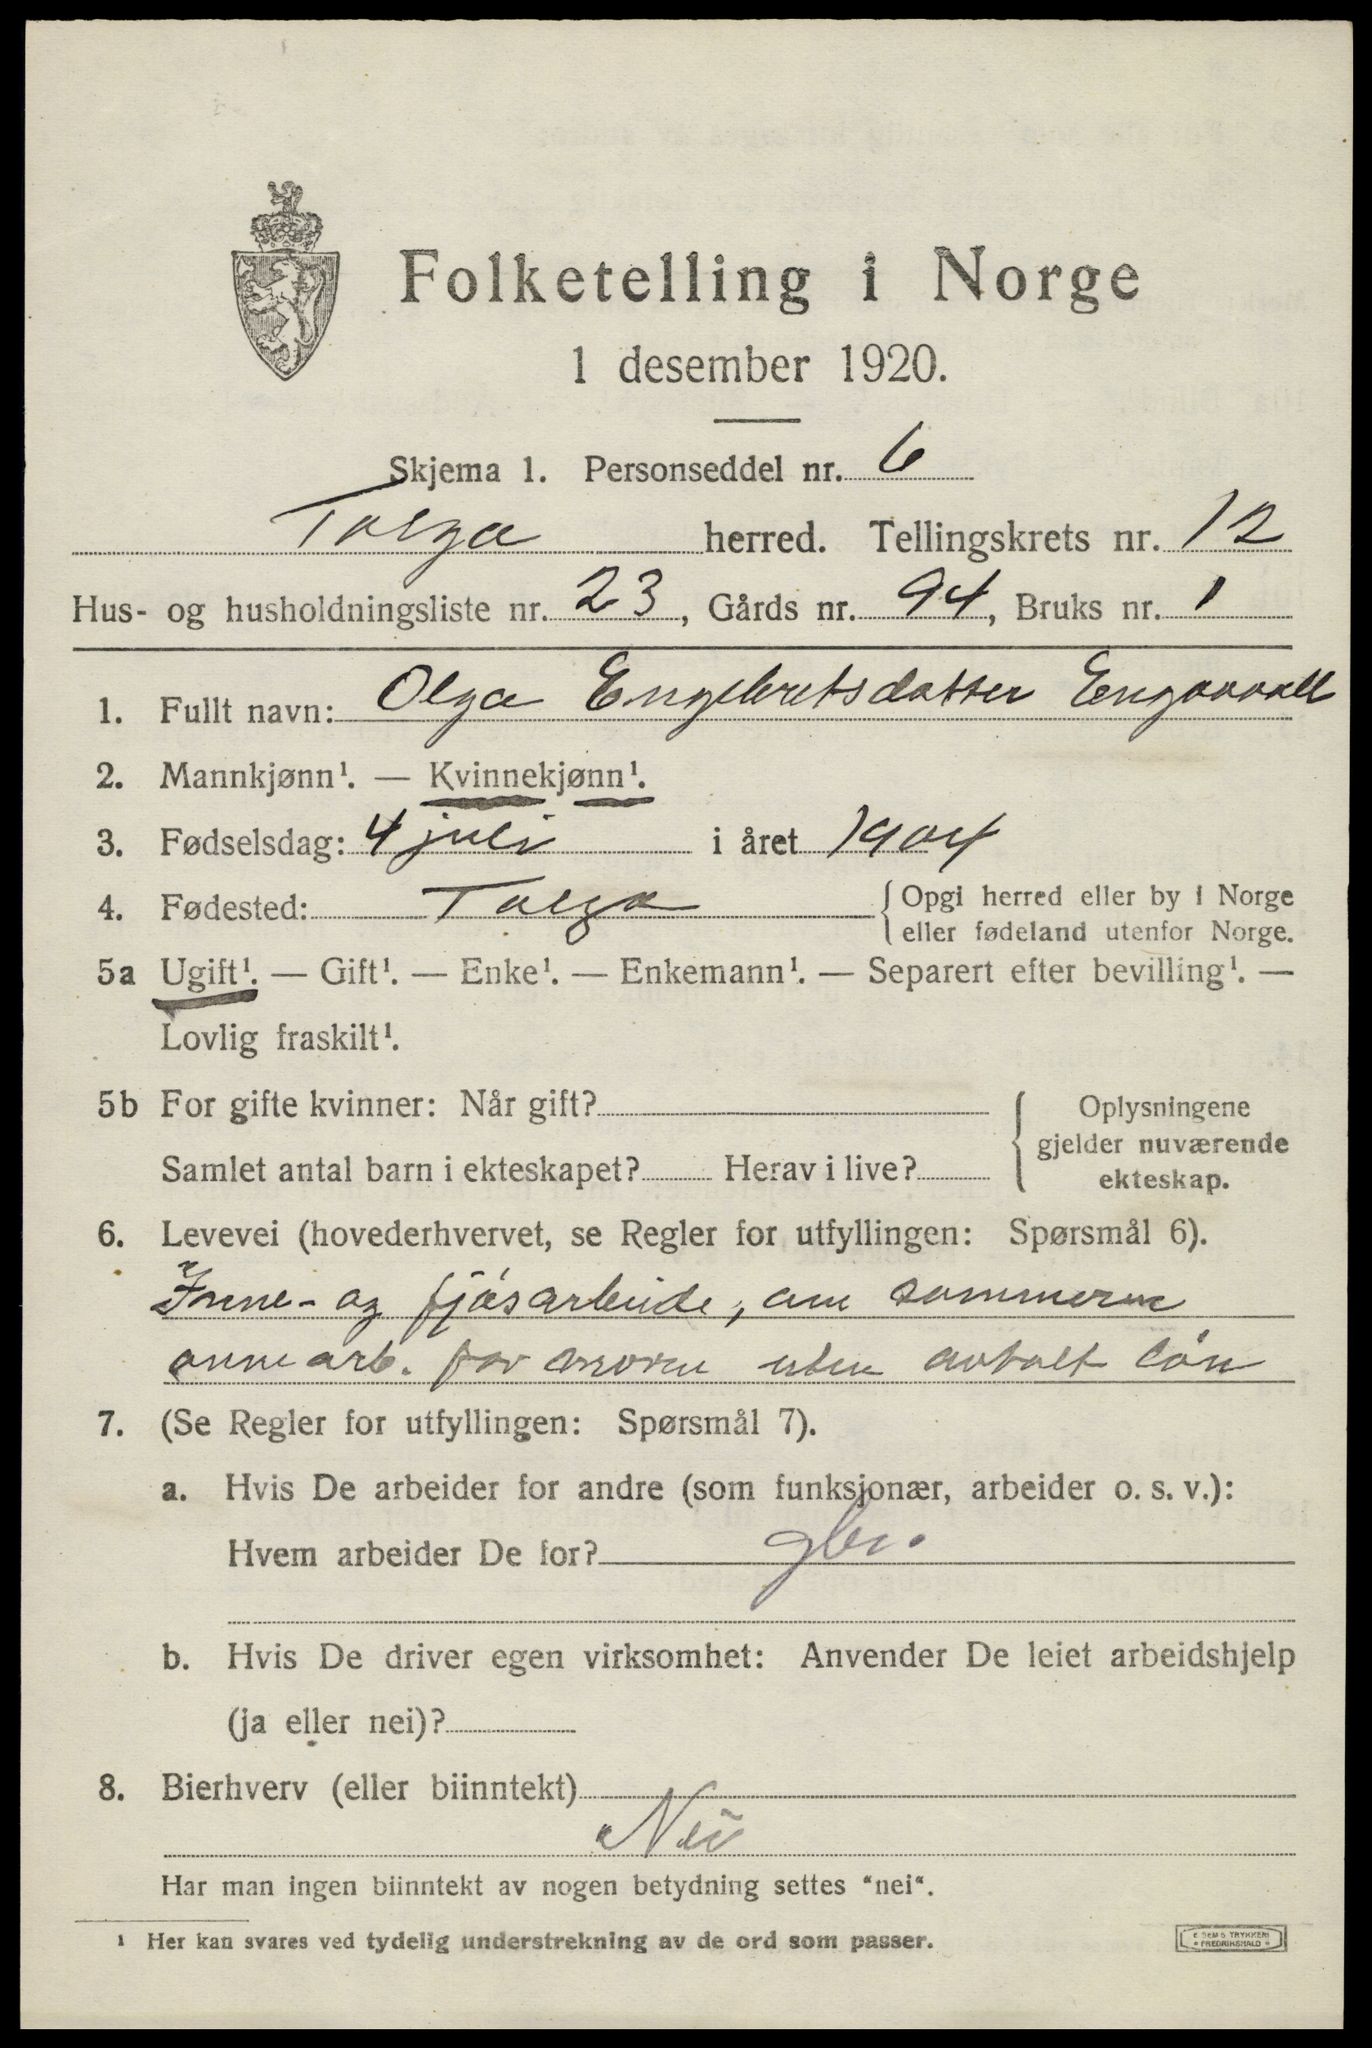 Folketelling i Norge
1 desember 1920.
Skjema 1. Personseddel nr. 6
Tolga herred. Tellingskrets nr. 12
Hus- og husholdningsliste nr. 23, Gårds nr. 94, Bruks nr. 1
1. Fullt navn: Olga Engebretsdatter Engaavoll
2. Mannkjønn¹. — Kvinnekjønn¹.
3. Fødselsdag: 4 juli i året 1904
4. Fødested: Tolga { Opgi herred eller by i Norge
eller fødeland utenfor Norge.
5a Ugift¹. — Gift¹. — Enke¹. — Enkemann¹. — Separert efter bevilling¹. —
Lovlig fraskilt¹.
5b For gifte kvinner: Når gift? { Oplysningene
gjelder nuværende
Samlet antal barn i ekteskapet? Herav i live? ekteskap.
6. Levevei (hovederhvervet, se Regler for utfyllingen: Spørsmål 6).
Inne- og fjøsarbeide, om sommeren
onnearb. for moren uten avtalt løn
7. (Se Regler for utfyllingen: Spørsmål 7).
a. Hvis De arbeider for andre (som funksjonær, arbeider o. s. v.):
Hvem arbeider De for? gbr.
b. Hvis De driver egen virksomhet: Anvender De leiet arbeidshjelp
(ja eller nei)?
8. Bierhverv (eller biinntekt)
Nei
Har man ingen biinntekt av nogen betydning settes "nei".
¹ Her kan svares ved tydelig understrekning av de ord som passer.